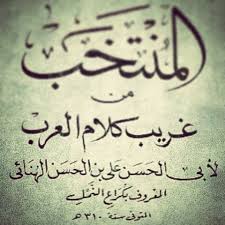 المنتخب
من
غريب كلام العرب
لأبي الحسن علي بن الحسن الهنائي
المعروف بكراع النمل
المتوفى سنة ٣١٠ هـ